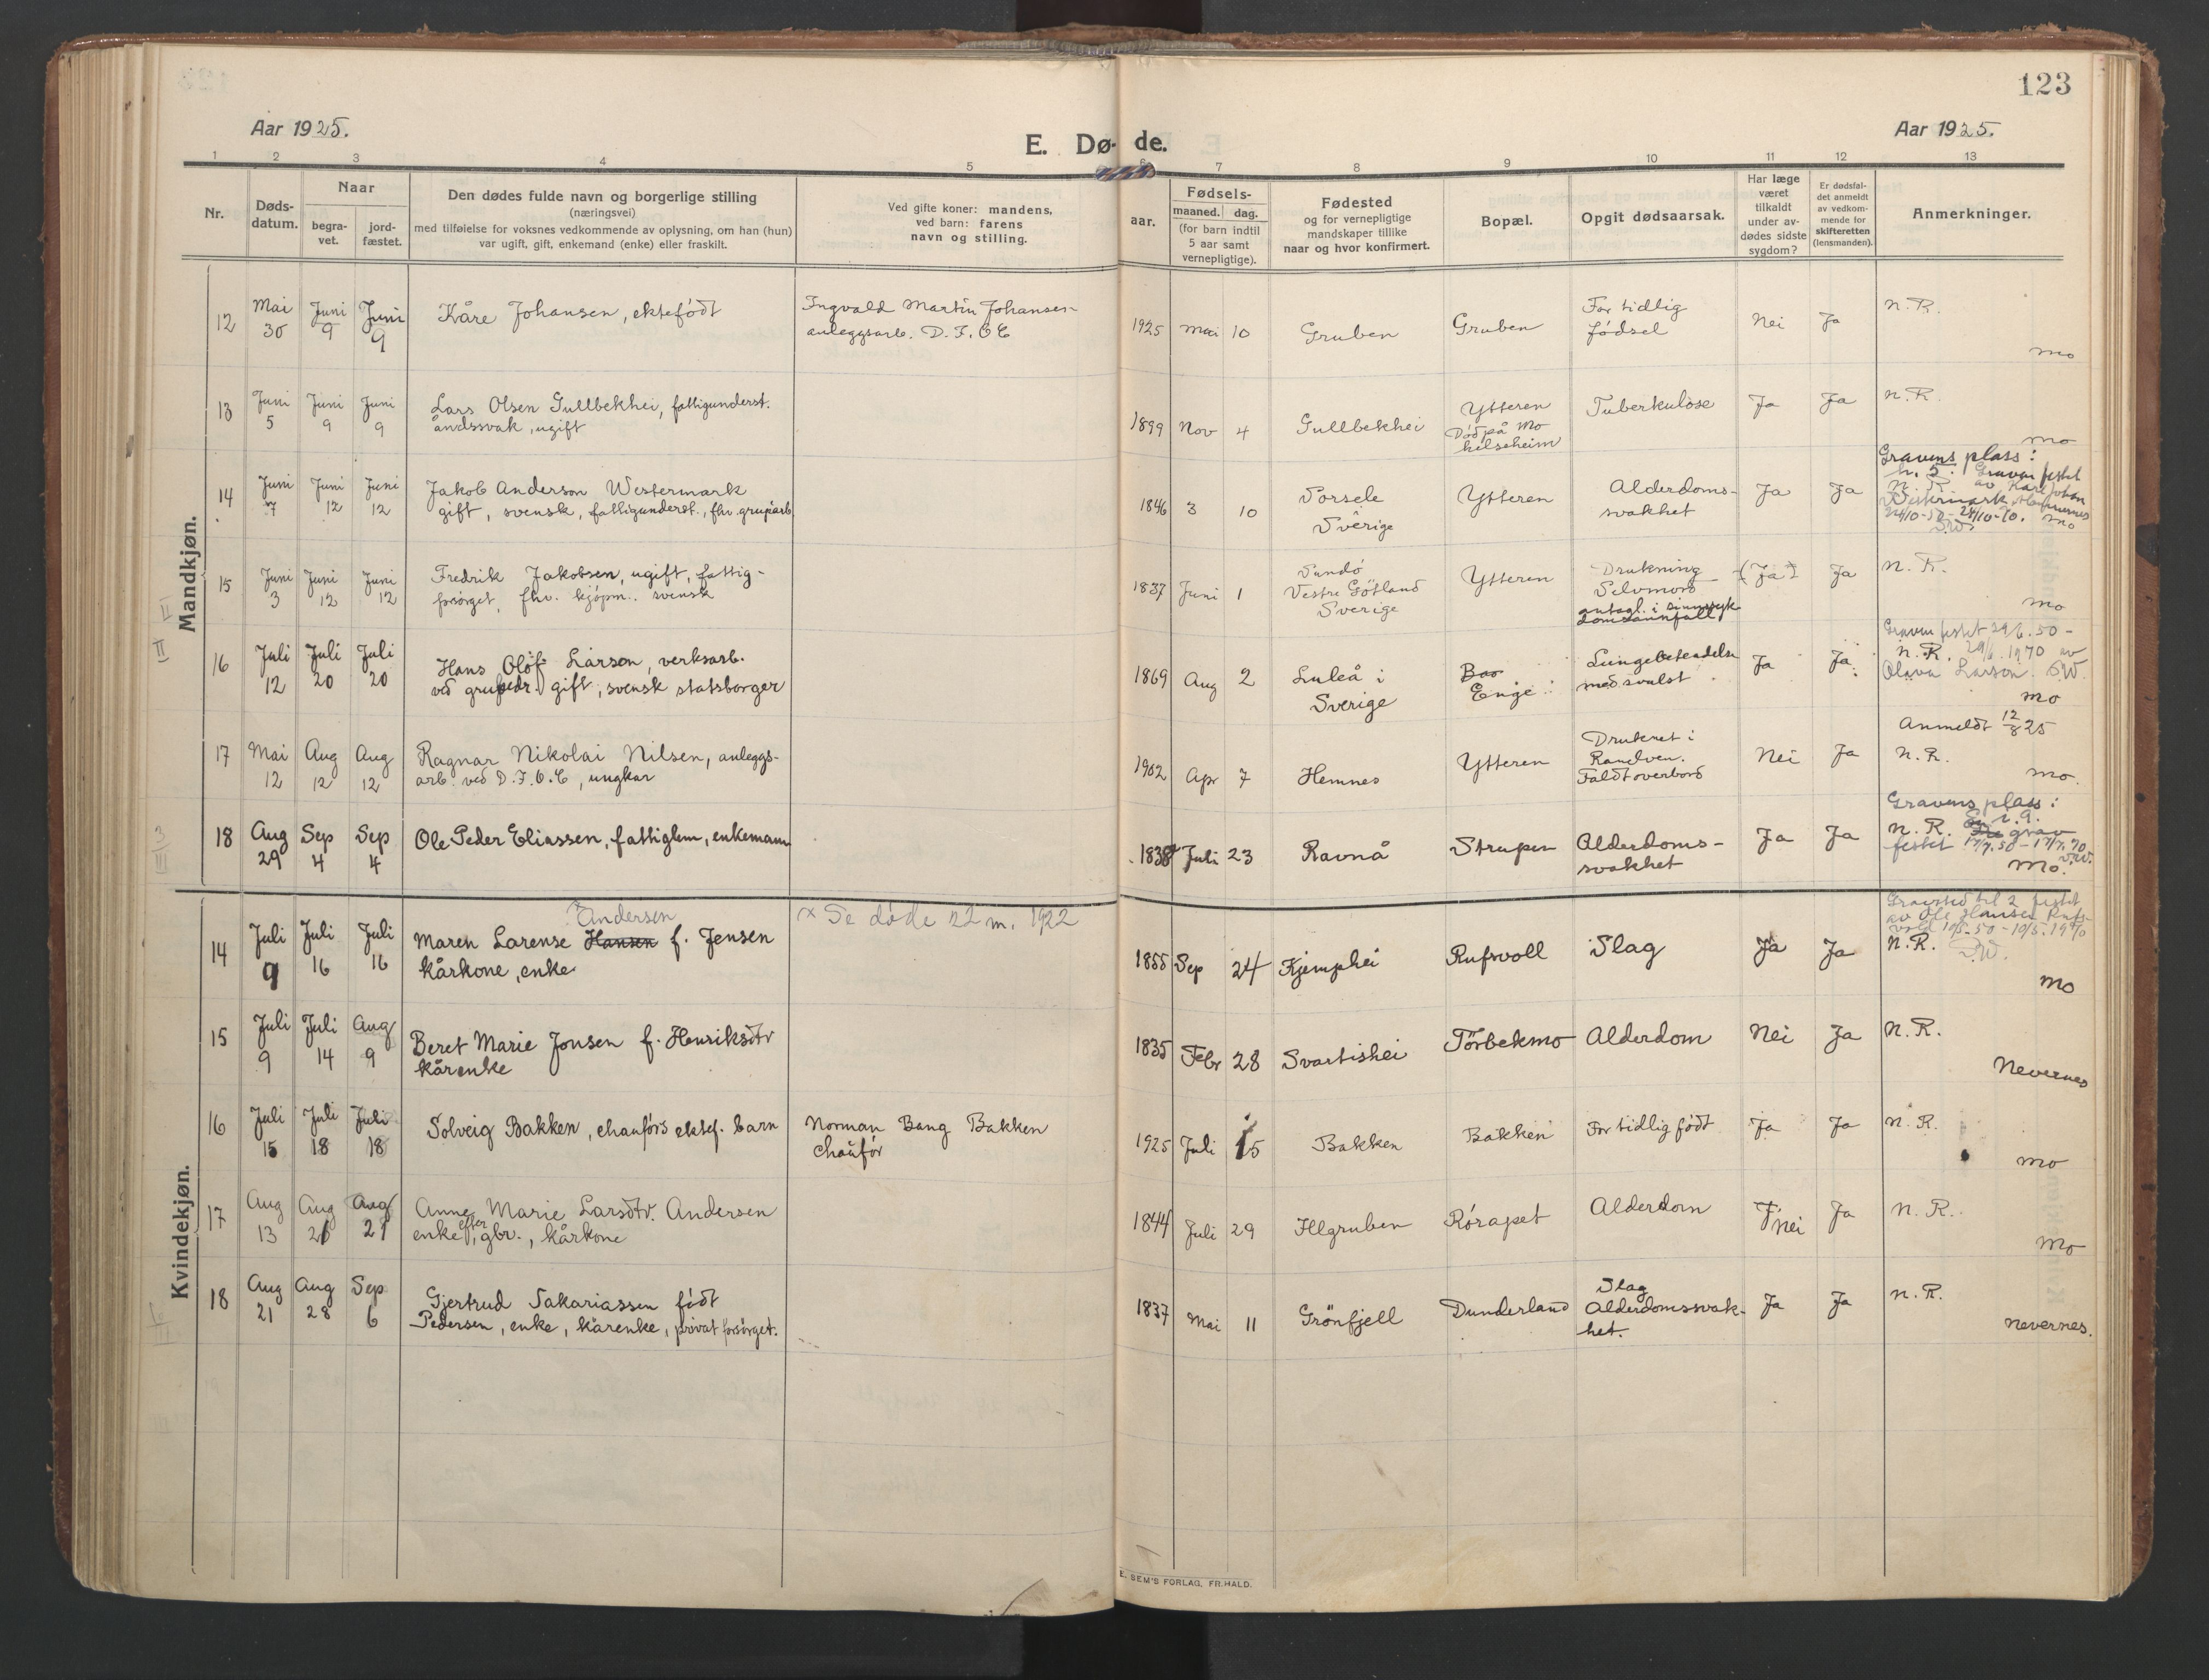 123
Aar 1925.
Aar 1925.
E. Dø- de.
1 2 3 4 5 6 7 8 9 10 11 12 13
Nr.
Døds-
datum.
Naar
begra-
vet.
jord-
fæstet.
Den dødes fulde navn og borgerlige stilling
(næringsvei)
med tilføielse for voksnes vedkommende av oplysning, om han (hun)
var ugift, gift, enkemand (enke) eller fraskilt.
Ved gifte koner: mandens,
ved barn: farens
navn og stilling.
Fødsels-
aar.
maaned. dag.
(for barn indtil
5 aar samt
vernepligtige).
Fødested
og for vernepligtige
mandskaper tillike
naar og hvor konfirmert.
Bopæl.
Opgit dødsaarsak.
Har læge
været
tilkaldt
under av-
dødes sidste
sygdom?
Er dødsfal-
det anmeldt
av vedkom-
mende for
skifteretten
(lensmanden).
Anmerkninger.
Mandkjøn.
12
Mai
30
Juni
9
Juni
9
Kåre Johansen, ektefødt
Ingvald Martin Johansen
anleggsarb. D.F.O.C
1925 Mai 10
Gruben
Gruben
For tidlig
fødsel
Nei
Ja
N. R.
Mo
13
Juni
5
Juni
9
Juni
9
Lars Olsen Gullbekhei, fattigunderst.
åndssvak, ugift
1899 Nov 4
Gullbekhei
Ytteren
Død på Mo
helseheim
Tuberkulose
Ja
Ja
N. R.
Mo
14
Juni
7
Juni
12
Juni
12
Jakob Anderson Westermark
gift, svensk, fattigunderst., fhv. gruparb
1846 3 10
Sorsele
Sverige
Ytteren
Alderdoms-
svakhet
Ja
Ja
Gravens plass:
Graven festet
N. R. av Karl Johan
Westermark
24/10-50 - 24/10-70.
Mo
15
Juni
3
Juni
12
Juni
12
Fredrik Jakobsen, ugift, fattig-
forsørget, fhv. kjøpm., svensk
1837 Juni 1
Sundö
Vestre Götland
Sverige
Ytteren
Drukning
Selvmord
antagl. i sinnssyk
domsannfall
(Ja)
Ja
N. R.
Mo
16
Juli
12
Juli
20
Juli
20
Hans Olöf Larson, verksarb.
ved grupedr. gift, svensk statsborger
1869 Aug 2
Luleå i
Sverige
Enge
Lungebetendelse
med svulst
Ja
Ja
Graven festet 29/6.50 -
N. R. 29/6.1970 av
Olava Larson. S.W.
Mo
17
Mai
12
Aug
12
Aug
12
Ragnar Nikolai Nilsen, anleggs-
arb. ved D.F.O.C, ungkar
1902 Apr 7
Hemnes
Ytteren
Druknet i
Ranelven.
Faldt overbord
Nei
Ja
Anmeldt 12/8 25
N. R.
Mo.
18
Aug
29
Sep
4
Sep
4
Ole Peder Eliassen, fattiglem, enkemann
1838 Juli 23
Ravnå
Strupen
Alderdoms-
svakhet
Ja
Ja
Gravens plass:
N. R. grav
festet 17/7.50 - 17/7.70
S.W.
Mo.
Kvindekjøn.
14
Juli
9
Juli
16
Juli
16
× Andersen
Maren Larense Hansen f. Jensen
kårkone, enke
× Se døde n2 m. 1922
1855 Sep 24
Kjemphei
Rufsvoll
Slag
Ja
Ja
Gravsted til 2 festet
av Ole Hansen Rufs-
vold 10/5-50 - 10/5.1970
N. R. S.W.
Mo
15
Juli
9
Juli
14
Aug
9
Beret Marie Jonsen f. Henriksdtr
kårenke
1835 Febr 28
Svartishei
Törbekmo
Alderdom
Nei
Ja
N. R.
Nevernes
16
Juli
15
Juli
18
Juli
18
Solveig Bakken, chauførs ektef. barn
Norman Bang Bakken
Chaufør
1925 Juli 15
Bakken
Bakken
For tidlig født
Ja
Ja
N. R.
Mo
17
Aug
13
Aug
21
Aug
21
Anne Marie Larsdtr. Andersen
enke efter gbr., kårkone
1844 Juli 29
Ilgruben
Rørapet
Alderdom
Nei
Ja
N. R.
Mo
18
Aug
21
Aug
28
Sep
6
Gjertrud Sakariassen født
Pedersen, enke, kårenke, privat forsørget.
1837 Mai 11
Grönfjell
Dunderland
Slag
Alderdomssvak-
het.
Ja
Ja
N. R.
Nevernes.
E. SEM'S FORLAG, FR.HALD.